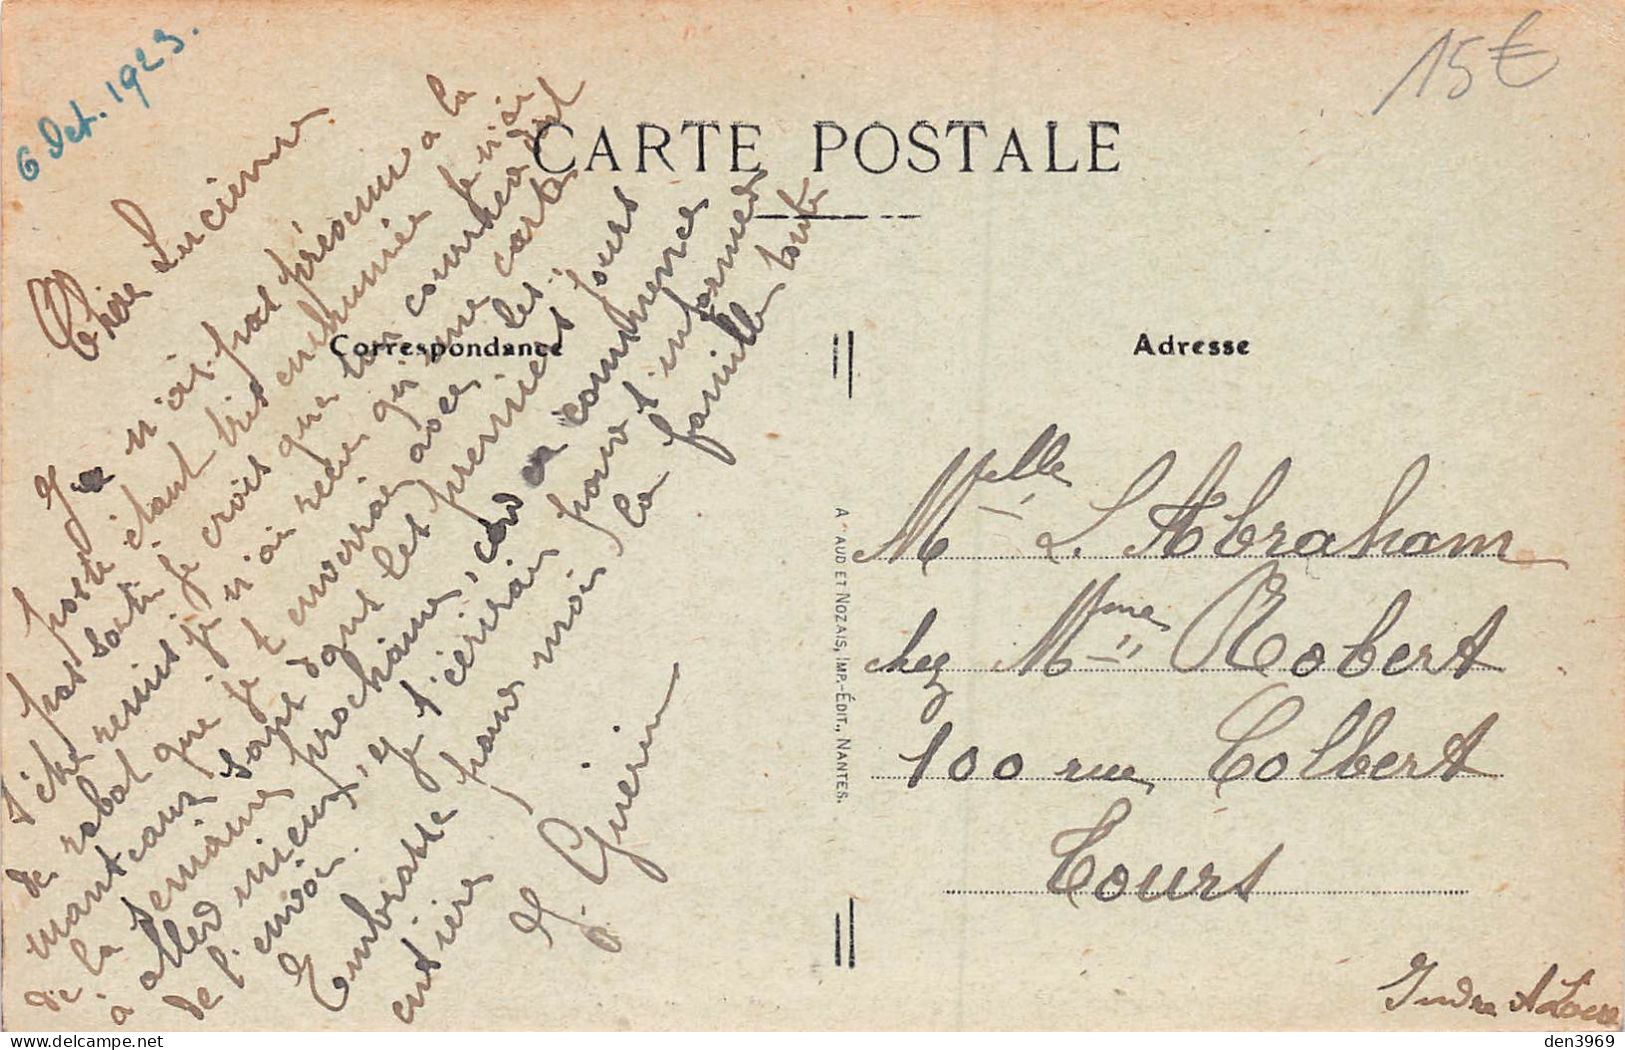 6 Oct. 1923.
15€
CARTE POSTALE
Correspondance
Adresse
Chère Lucienne
Je n'ai pas présumé à la
poste étant très enrhumée je n'ai
pas sorti je crois que ton courrier a dut
t'être remis, je n'ai recu qu'une carte
de rabat que je t'enverrai avec les
manteaux sans dout les premiers jours
de la semaine prochaine, car ça commence
à aller mieux, je t'écrirai pour t'informer
de l'envoi.
Embrasse pour moi la famille toute
entière
G. Guerin
Melle L. Abraham
chez Mme Robert
100 rue Colbert
Tours
Indre & Loire
AUD ET NOZAIS, IMP.-ÉDIT., NANTES.
delcampe.net
den3969